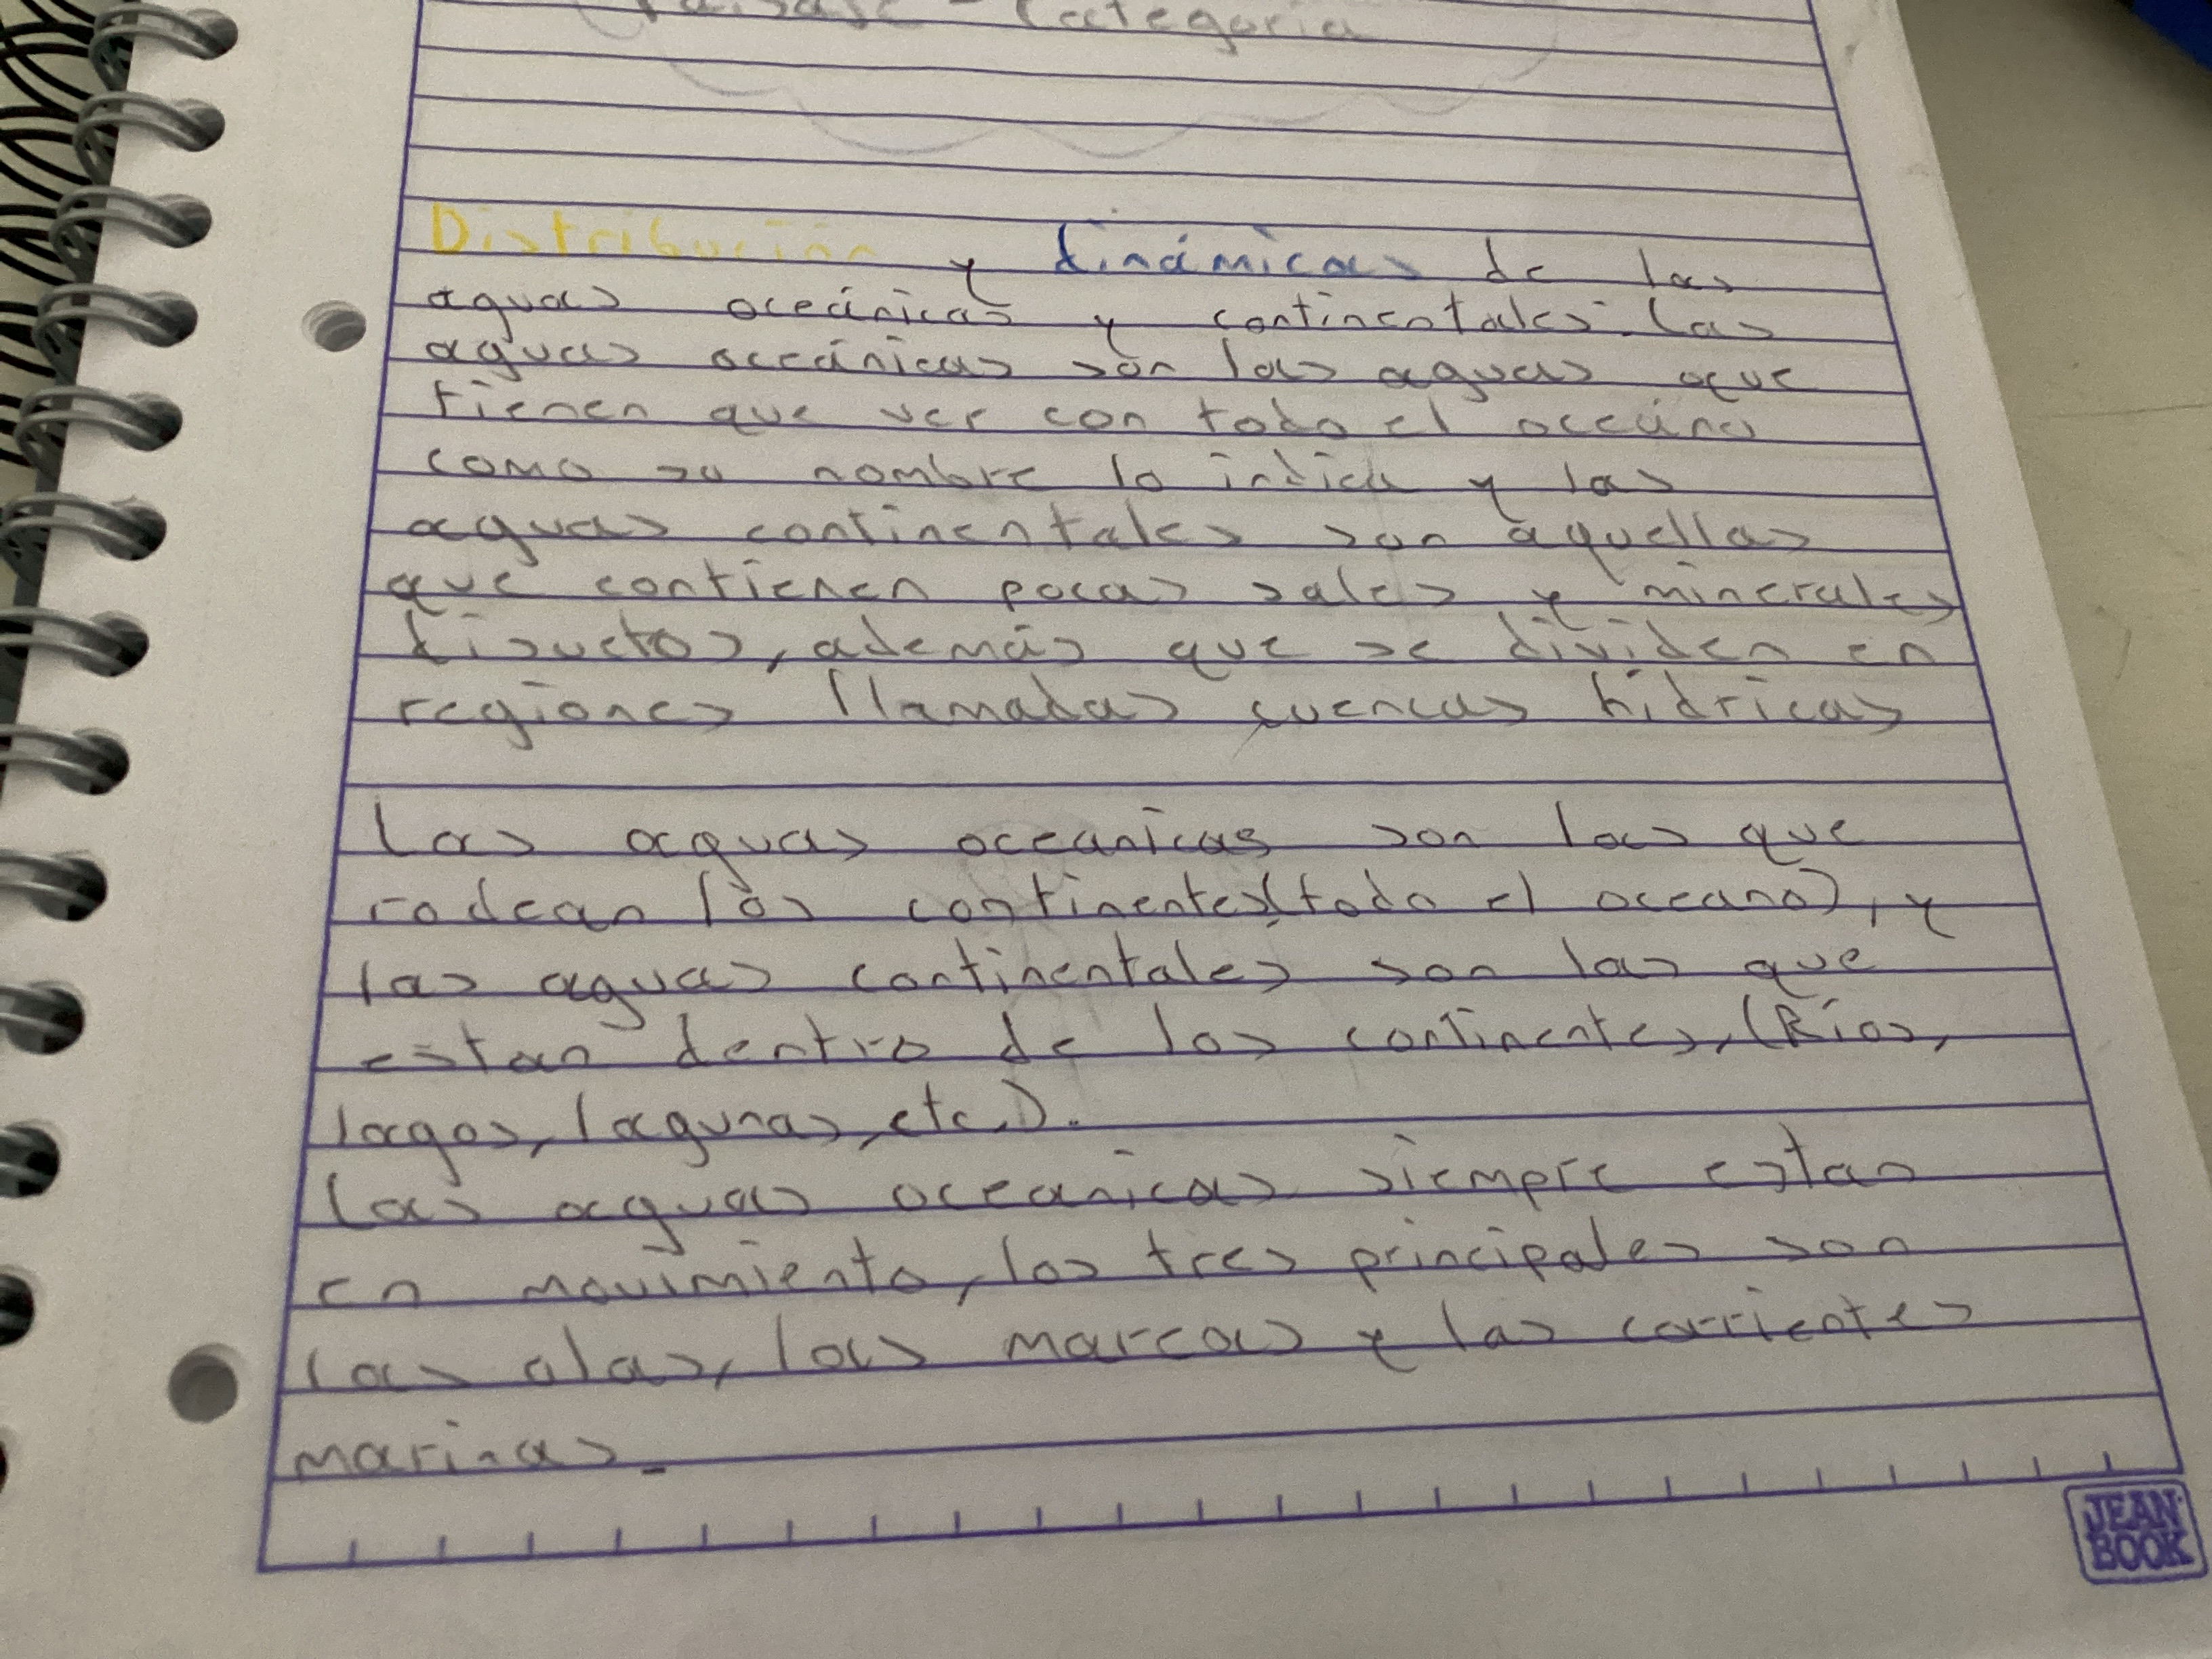 Paisaje - Categoría
Distribución y dinámicas de las
aguas oceánicas y continentales. Las
aguas oceánicas son las aguas que
tienen que ver con todo el oceáno
como su nombre lo indica y las
aguas continentales son aquellas
que contienen pocas sales y minerales
disuetos, además que se dividen en
regiones llamadas cuencas hídricas
Las aguas oceanicas son las que
rodean los continentes(todo el oceano), y
las aguas continentales son las que
estan dentro de los continentes, (Ríos,
lagos, lagunas, etc.).
Las aguas oceanicas siempre estan
en movimiento, los tres principales son
las olas, las mareas y las corrientes
marinas.
JEAN BOOK